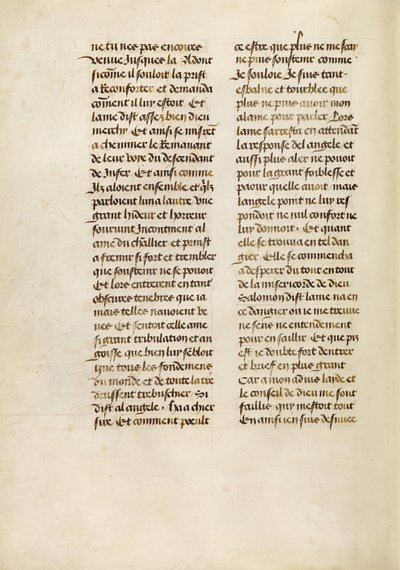 ne tu nes pas encoure
venue Jusques la Adont
sicõme il souloit la prist
a Reconforter et demanda
cõment il luy estoit Et
lame dist assez bien dieu
mercy Et ainsi se misrẽt
a cheminer le Remanant
de leur voye du descendant
de Jnfer Et ainsi comme
Ilz aloient ensemble et qͥlz
parloient lun a lautre Vne
grant hideur et horreur
sourvint Jncontinent al
ame du chl̃lier et prinst
a fremir si fort et trembler
que soustenir ne se pouoit
Et lors entrerent en tant
obscures tenebres que ia
mais telles nauoient ve
ues Et sentoit celle ame
si grant tribulation et an
goisse que bien luy sẽbloit
que tous les fondemens
du monde et de toute la tre
deussent trebuscher Si
dist al angele · Ha a chier
sire Et comment poeult
ce estre que plus ne me scay
ne puis soustenir comme
Je souloie Je suis tant
esbahie et tourblee que
plus ne puis auoir mon
alaine pour parler Lors
lame sarresta en attendãt
la response del angele et
aussi plus aler ne pouoit
pour la grant foiblesse et
paour quelle auoit mais
langele point ne luy res
pondoit ne nul confort ne
luy donnoit · Et quant
elle se trouua en tel dan
gier Elle se commencha
a desperer du tout en tout
de la misericorde de dieu
Salomon dist lame na en
ce dangier ou ie me treuue
ne sens ne entendement
pour en saillir Et que pis
est ie doubte fort dentrer
et brief en plus grant
Car a mon aduis laide et
le conseil de dieu me sont
faillis quy mestoit tout
En ainsi en suis desnuee